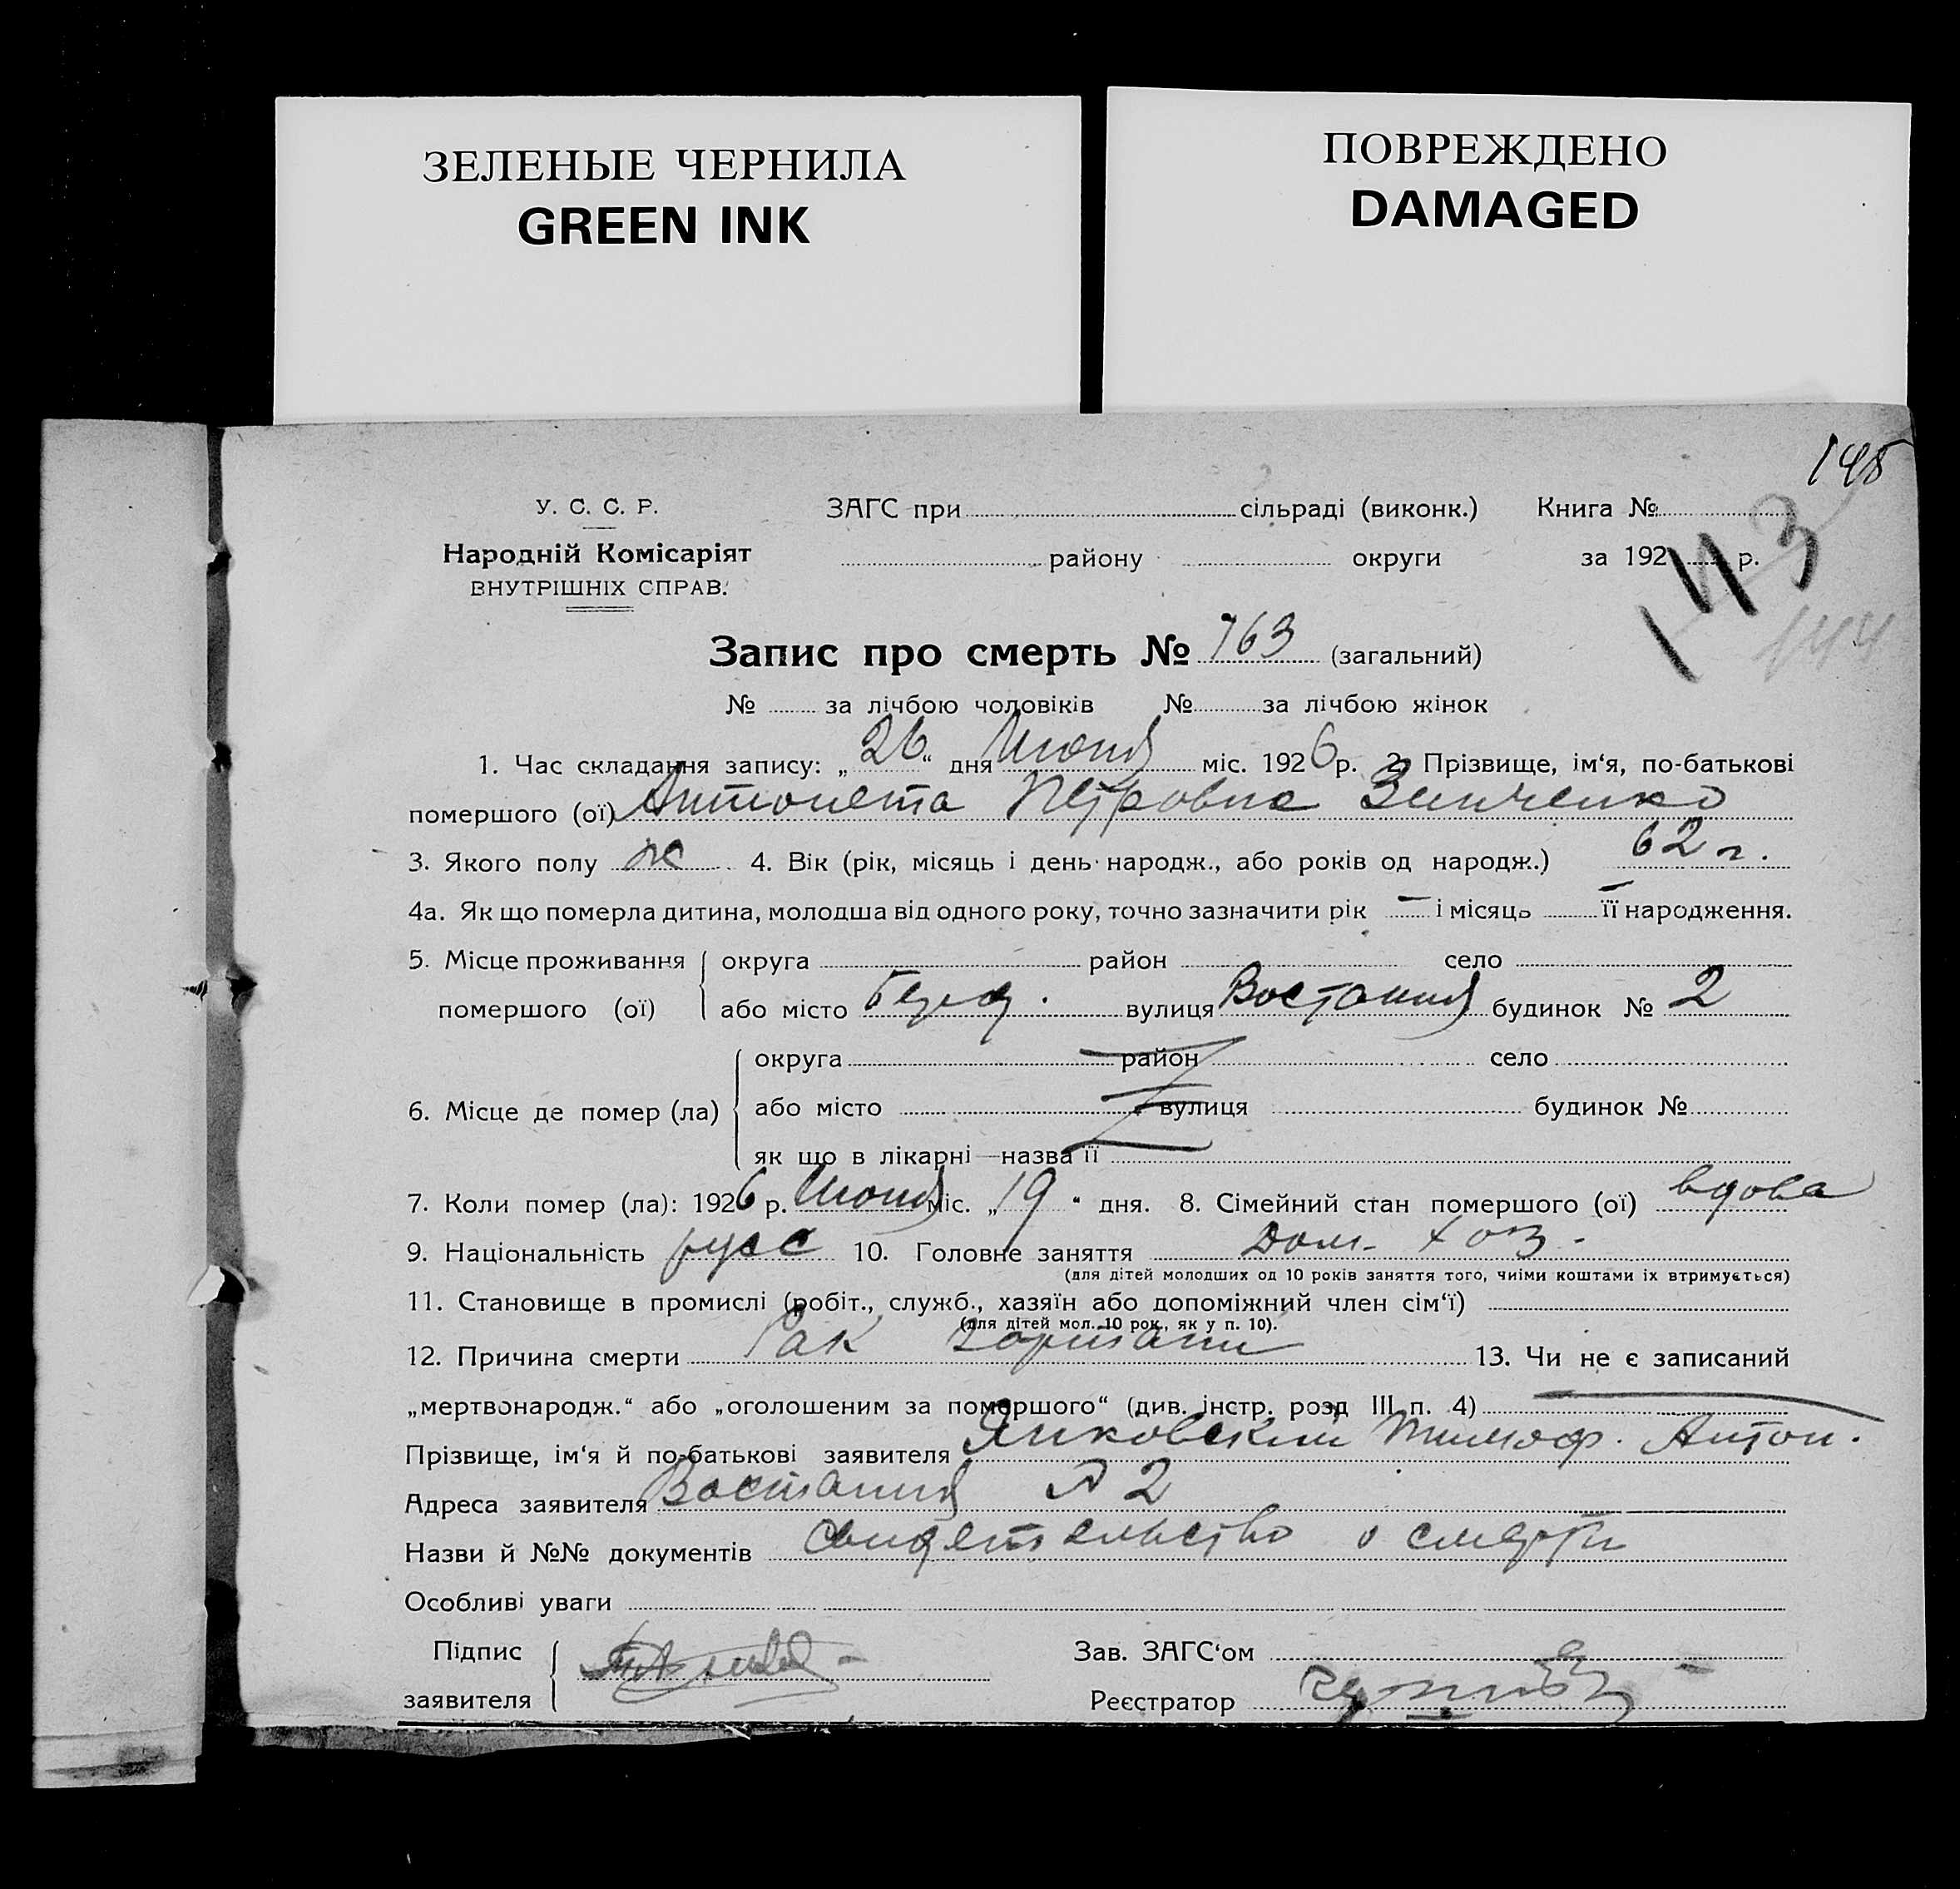 ЗЕЛЕНЫЕ ЧЕРНИЛА
GREEN INK
ПОВРЕЖДЕНО
DAMAGED
145
У. С. С. Р.
Народній Комісаріят
ВНУТРІШНІХ СПРАВ.
ЗАГС при сільраді (виконк.) Книга №
району округи за 192 р.
143
144
Запис про смерть № 763 (загальний)
№ за лічбою чоловіків № за лічбою жінок
1. Час складання запису: „26“ дня Июня міс. 1926 р. 2. Прізвище, ім‘я, по-батькові
помершого (ої) Антонета Петровна Зинченко
3. Якого полу ж 4. Вік (рік, місяць і день народж., або років од народж.) 62 г.
4а. Як що померла дитина, молодша від одного року, точно зазначити рік — і місяць — її народження.
5. Місце проживання округа район село
помершого (ої) або місто вулиця Востания будинок № 2
округа район село
6. Місце де помер (ла) або місто вулиця будинок №
як що в лікарні—назва її
7. Коли помер (ла): 1926 р. Июня міс. „19“ дня. 8. Сімейний стан помершого (ої) вдова
9. Національність русс 10. Головне заняття Дом. хоз.
(для дітей молодших од 10 років заняття того, чиїми коштами їх втримується)
11. Становище в промислі (робіт., служб., хазяїн або допоміжний член сім‘ї)
(для дітей мол. 10 рок., як у п. 10).
12. Причина смерти Рак гортани 13. Чи не є записаний
„мертвонародж.“ або „оголошеним за помершого“ (див. інстр. розд III п. 4)
Прізвище, ім‘я й по-батькові заявителя Янковский Тимоф. Антон.
Адреса заявителя Востания № 2
Назви й №№ документів свидетельство о смерти
Особливі уваги
Підпис
заявителя
Зав. ЗАГС‘ом
Реєстратор